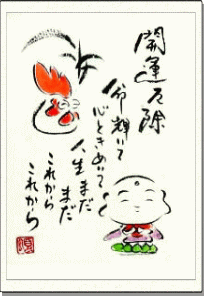 開運厄除
命輝いて
心ときめいて
人生まだ
まだ
これから
これから